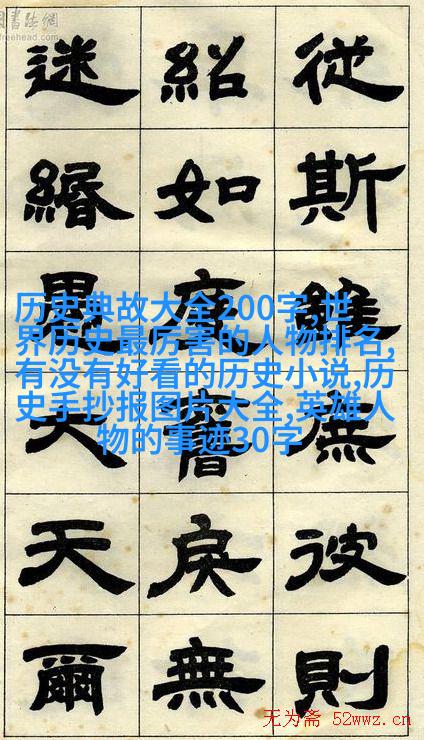 書法網
freehead.com
從斯雖彼則
紹如戾無
迷緡天爾
历史典故大全200字,世
界历史最厉害的人物排名,
有没有好看的历史小说,历
史手抄报图片大全,英雄人
物的事迹30字
无为斋 52wwz.cn